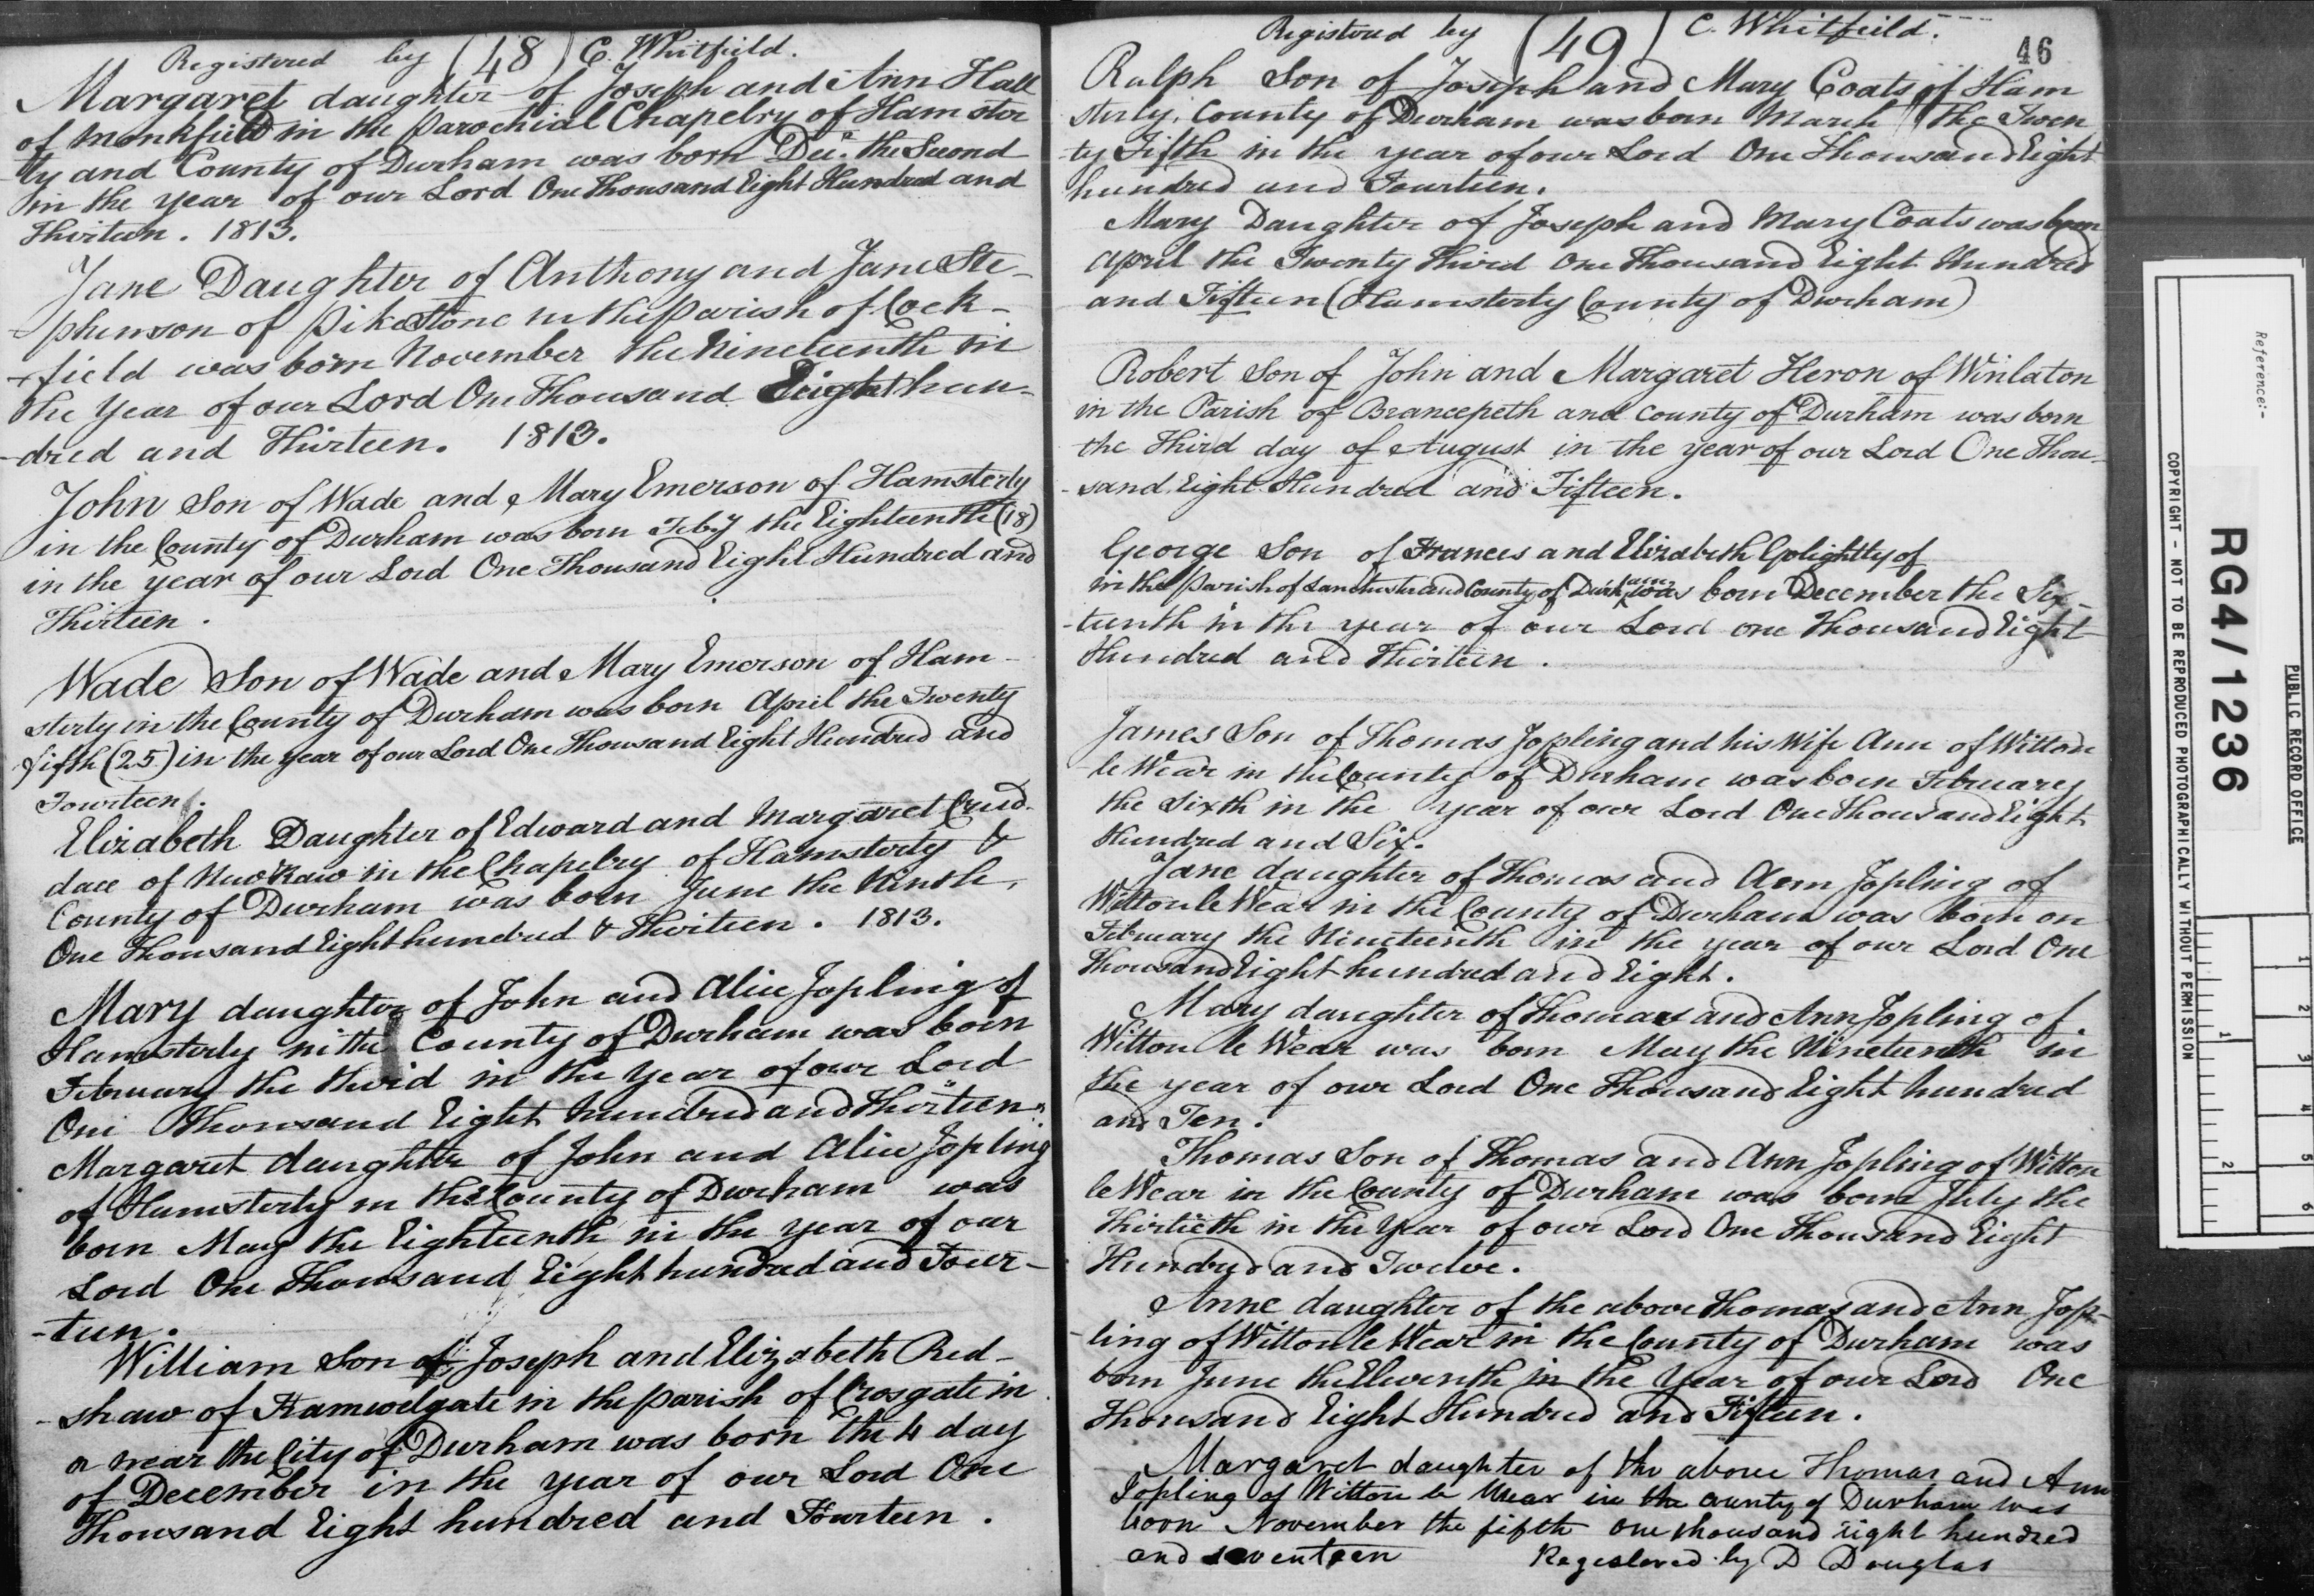 Registered by (48) C. Whitfield.
Margaret daughter of Joseph and Ann Hall
of Monkfield in the parochial Chapelry of Hamster
ly and County of Durham was born Dec. the Second
in the year of our Lord One Thousand Eight Hundred and
Thirteen. 1813.
Jane Daughter of Anthony and Jane Ste-
phenson of Pikestone in the parish of Cock-
field was born November the Nineteenth in
the Year of our Lord One Thousand Eight hun-
-dred and Thirteen. 1813.
John Son of Wade and Mary Emerson of Hamsterly
in the County of Durham was born Feby the Eighteenth (18)
in the year of our Lord One Thousand Eight Hundred and
Thirteen.
Wade Son of Wade and Mary Emerson of Ham-
sterly in the County of Durham was born April the Twenty
fifth (25) in the year of our Lord One Thousand Eight Hundred and
Fourteen.
Elizabeth Daughter of Edward and Margaret Crud-
dace of in the Chapelry of Hamsterly &
County of Durham was born June the Ninth,
One Thousand Eight hundred & Thirteen. 1813.
Mary daughter of John and Alice Jopling of
Hamsterly in the County of Durham was born
February the third in the Year of our Lord
One Thousand Eight hundred and Thirteen.
Margaret daughter of John and Alice Jopling
of Hamsterly in the County of Durham was
born May the Eighteenth in the year of our
Lord One Thousand Eight hundred and Four-
-teen.
William Son of Joseph and Elizabeth Red-
-shaw of Framwelgate in the parish of Crosgate in
or near the City of Durham was born the 4 day
of December in the year of our Lord One
Thousand Eight hundred and Fourteen.
Registered by (49) C. Whitfield.
46
Ralph Son of Joseph and Mary Coats of Ham
sterly, County of Durham was born March The Twen
-ty Fifth in the year of our Lord One Thousand Eight
hundred and Fourteen.
Mary Daughter of Joseph and Mary Coats was born
April the Twenty third One Thousand Eight Hundred
and Fifteen (Hamsterly County of Durham)
Robert Son of John and Margaret Heron of Winlaton
in the Parish of Brancepeth and County of Durham was born
the Third day of August in the year of our Lord One Thou-
-sand Eight Hundred and Fifteen.
George Son of Frances and Elizabeth Golightly of
in the Parish of Lanchester and County of Durham was born December the Six-
-teenth in the year of our Lord one Thousand Eight
Hundred and Thirteen.
James Son of Thomas Jopling and his Wife Ann of Witton
le Wear in the County of Durham was born February
the Sixth in the year of our Lord One thousand Eight
Hundred and Six.
Jane daughter of Thomas and Ann Jopling of
Witton le Wear in the County of Durham was born on
February the Nineteenth in the year of our Lord One
thousand Eight hundred and Eight.
Mary daughter of Thomas and Ann Jopling of
Witton le Wear was born May the Nineteenth in
the year of our Lord One Thousand Eight hundred
and Ten.
Thomas Son of Thomas and Ann Jopling of Witton
le Wear in the County of Durham was born July the
Thirtieth in the Year of our Lord One Thousand Eight
Hundred and Twelve.
Anne daughter of the above Thomas and Ann Jop-
-ling of Witton le Wear in the County of Durham was
born June the Eleventh in the Year of our Lord One
Thousand Eight Hundred and Fifteen.
Margaret daughter of the above Thomas and Ann
Jopling of Witton le Wear in the County of Durham was
born November the fifth one thousand eight hundred
and seventeen Registered by D Douglas
Reference:-
PUBLIC RECORD OFFICE
RG4/1236
COPYRIGHT - NOT TO BE REPRODUCED PHOTOGRAPHICALLY WITHOUT PERMISSION
1 2 3 4 5 6
1 2